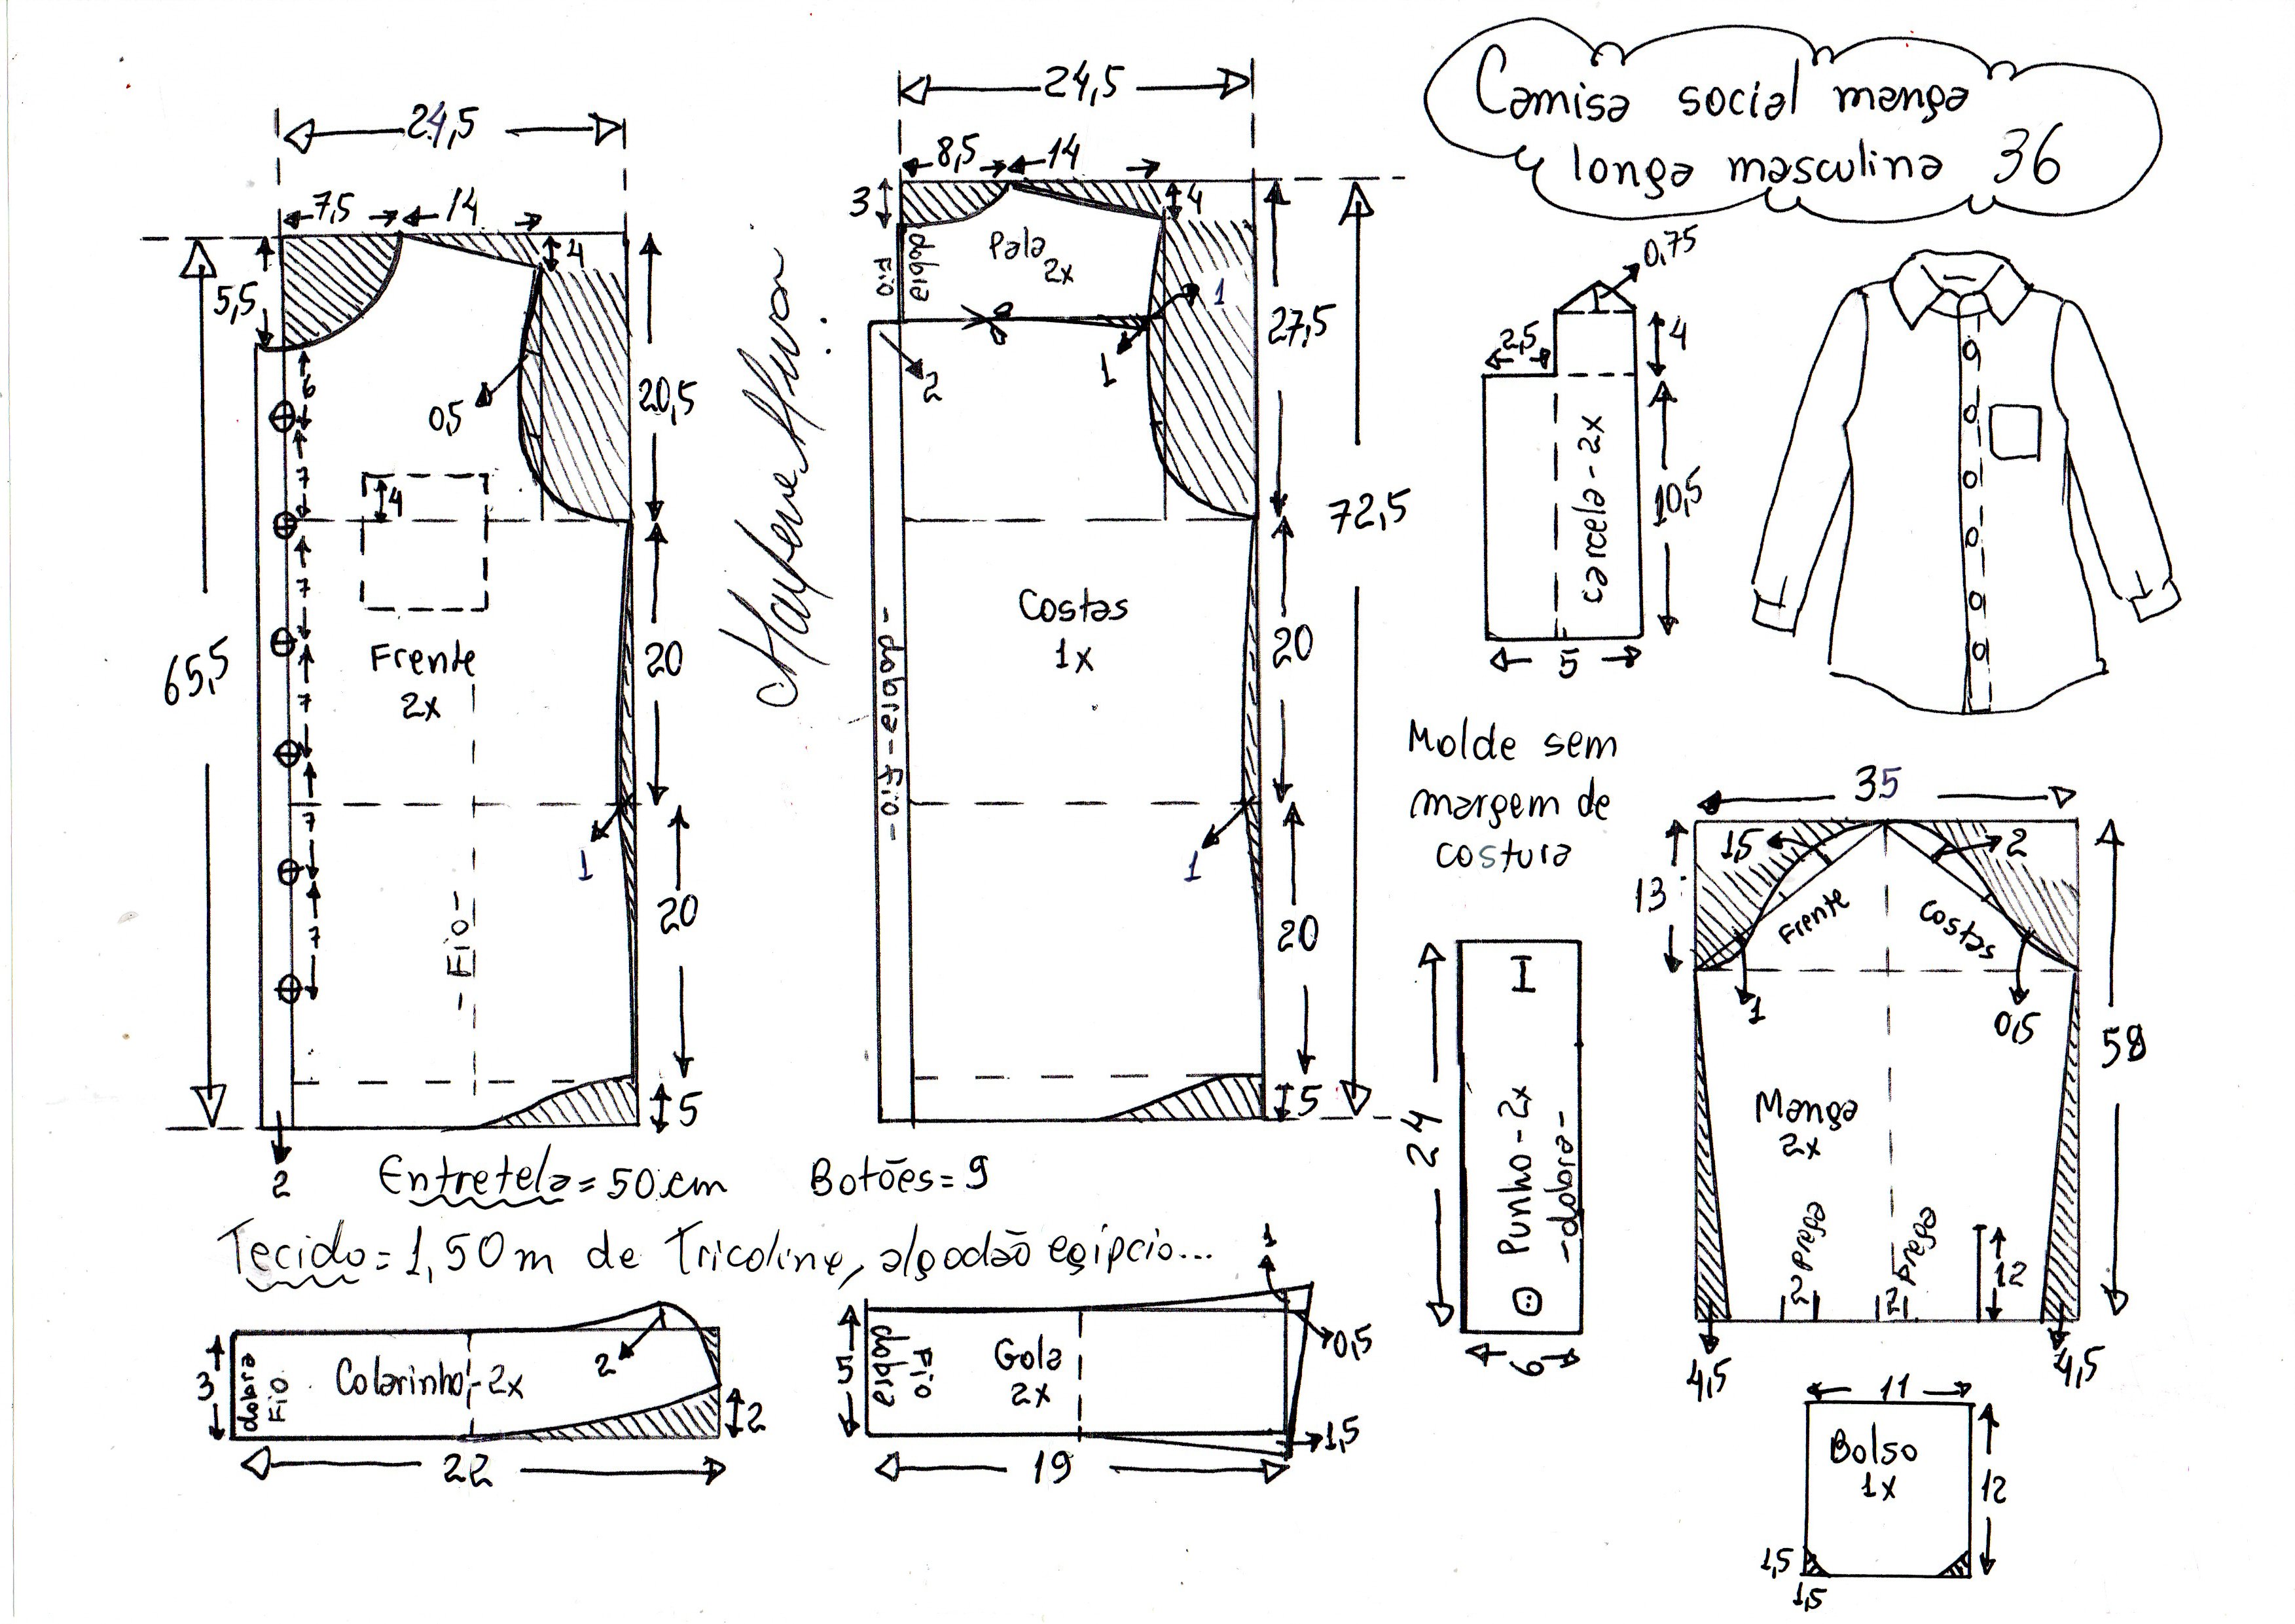 Camisa social manga
longa masculina 36
24,5
7,5
14
4
5,5
6
7
7
7
7
7
7
0,5
4
20,5
20
20
5
65,5
Frente
2x
-Fio-
1
2
24,5
8,5
14
3
4
Pala
2x
dobra
Fio
1
1
2
27,5
20
20
5
72,5
Costas
1x
-dobra-Fio-
1
0,75
2,5
4
10,5
carcela-2x
5
Molde sem
margem de
costura
35
13
1,5
2
Frente
Costas
1
0,5
58
Manga
2x
2 prega
2 prega
12
4,5
4,5
24
Punho-2x
-dobra-
6
Entretela=50cm
Botões=9
Tecido=1,50m de Tricoline, algodão egípcio...
3
dobra
Fio
Colarinho-2x
2
2
22
5
dobra
Fio
Gola
2x
1
0,5
1,5
19
11
Bolso
1x
12
1,5
1,5